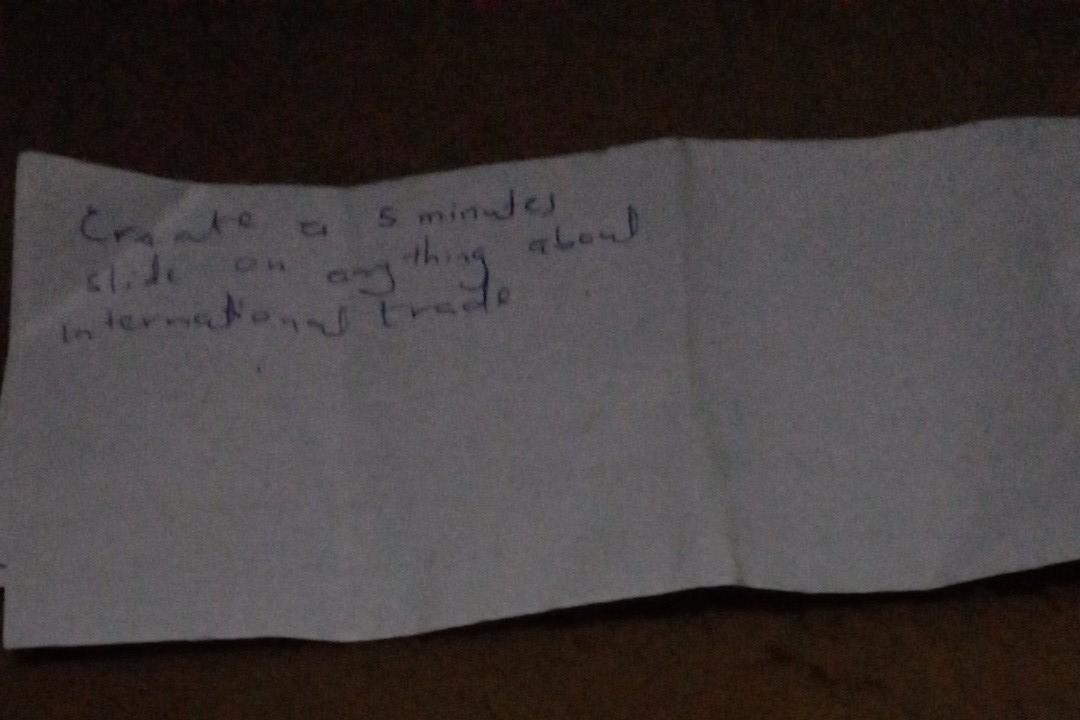 Create a 5 minutes
slide on anything about
international trade